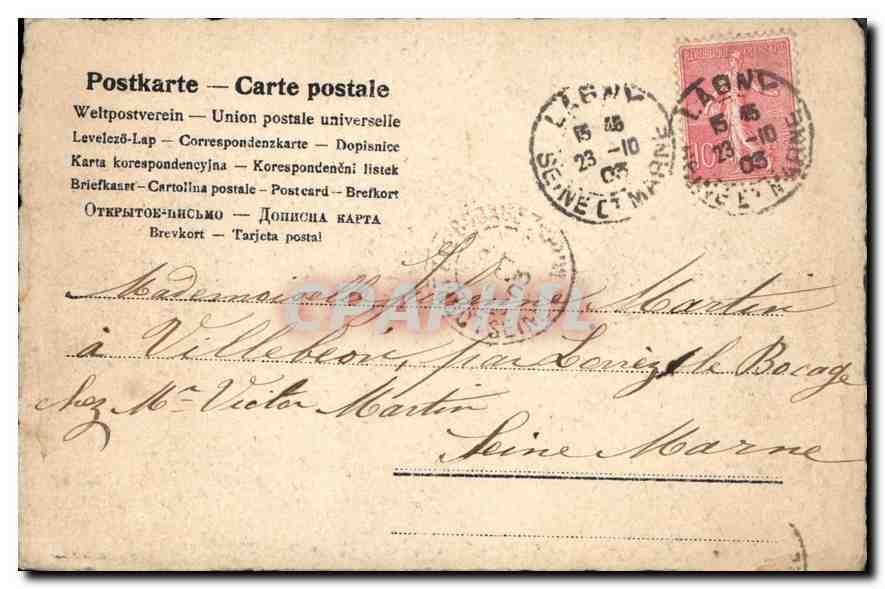 Postkarte — Carte postale
Weltpostverein — Union postale universelle
Levelező-Lap — Correspondenzkarte — Dopisnice
Karta korespondencyjna — Korespondenční listek
Briefkaart — Cartolina postale — Postcard — Brefkort
Открытое-письмо — Дописна карта
Brevkort — Tarjeta postal
LAGNY
15 45
23 -10
03
SEINE ET MARNE
LAGNY
15 45
23 -10
03
SEINE ET MARNE
10
CPAPHIL
Mademoiselle Martin
à Villebéon, par Lorrez le Bocage
chez Mr Victor Martin
Seine Marne